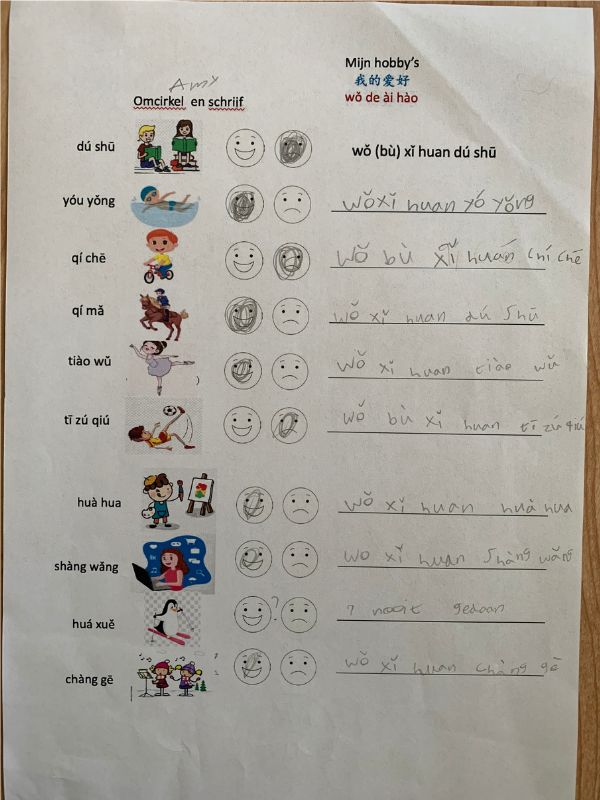 Mijn hobby's
我的爱好
wǒ de ài hào
Amy
Omcirkel en schrijf
dú shū wǒ (bù) xǐ huan dú shū
yóu yǒng wǒ xǐ huan yó yǒng
qí chē wǒ bù xǐ huán chí chē
qí mǎ wǒ xǐ huan dú shū
tiào wǔ wǒ xǐ huan tiào wǔ
tī zú qiú wǒ bù xǐ huan tī zú qiú
huà hua wǒ xǐ huan huà hua
shàng wǎng wo xǐ huan shàng wǎng
huá xuě ? ? nooit gedaan
chàng gē wǒ xǐ huan chàng gē